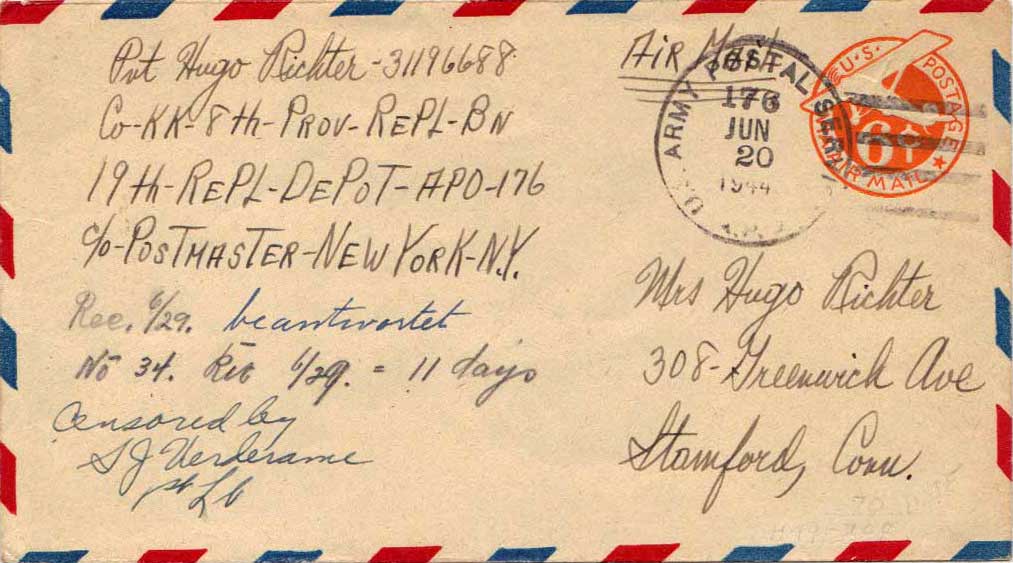 Pvt Hugo Richter - 31196688
Co-KK-8th-Prov-RePL-BN
19th-RePL-DePoT-APO-176
c/o-PostMaster-New York-N.Y.
Rec. 6/29. beantwortet
No 34. Rec 6/29. = 11 days
Censored by
S J Verderame
1st Lt
Air Mail
U.S. ARMY POSTAL SERVICE
176
JUN
20
1944
A.P.O.
U.S. POSTAGE
6¢
VIA AIR MAIL
Mrs Hugo Richter
308-Greenwich Ave
Stamford, Conn.